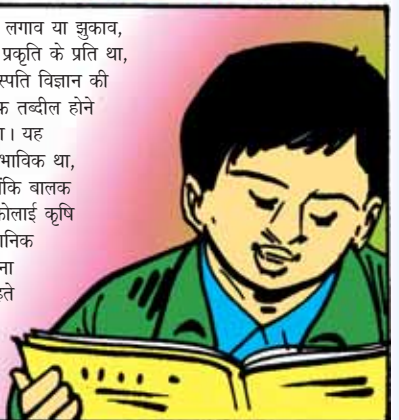 लगाव या झुकाव,
प्रकृति के प्रति था,
स्पति विज्ञान की
तब्दील होने
ा। यह
भाविक था,
ोंकि बालक
कोलाई कृषि
ानिक
ना
ते